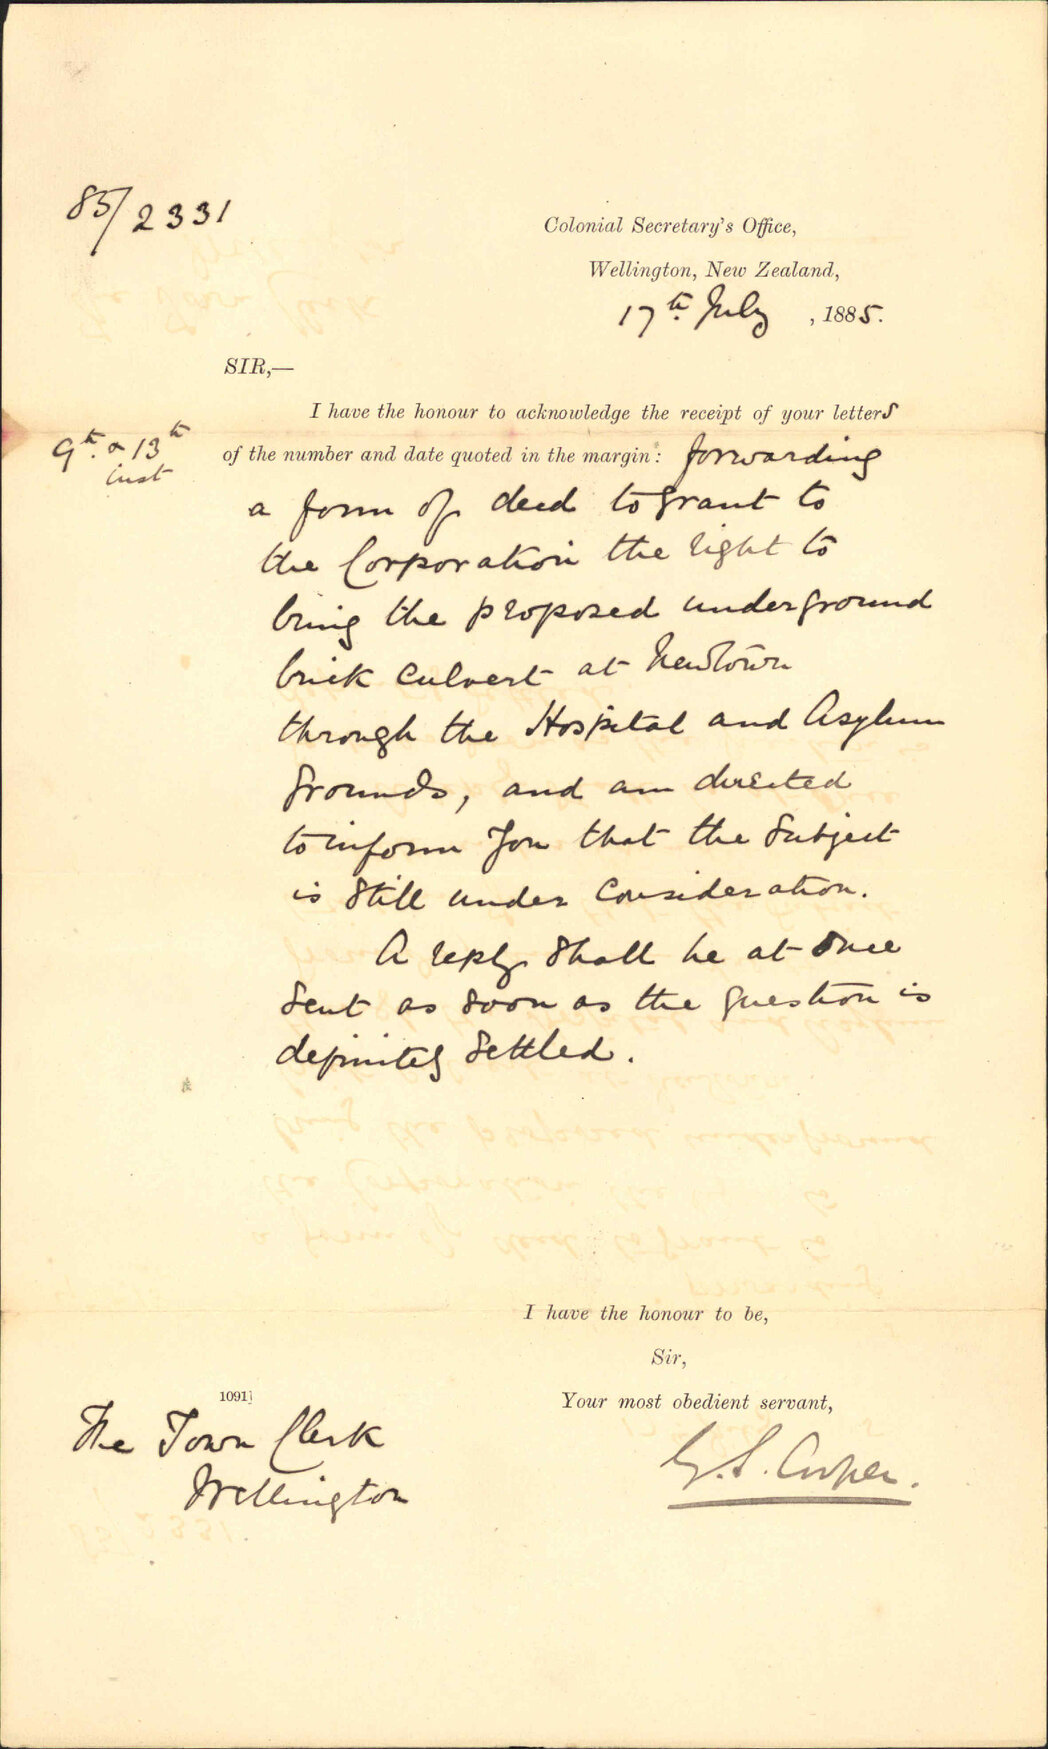 85/2331
Colonial Secretary's Office,
Wellington, New Zealand,
17th. July , 1885.
SIR,—
I have the honour to acknowledge the receipt of your letters
9th. & 13th
inst
of the number and date quoted in the margin: forwarding
a form of deed to grant to
the Corporation the right to
bring the proposed underground
brick culvert at Newtown
through the Hospital and Asylum
grounds, and am directed
to inform you that the subject
is still under consideration.
A reply shall be at once
sent as soon as the question is
definitely settled.
I have the honour to be,
Sir,
Your most obedient servant,
G. S. Cooper.
1091]
The Town Clerk
Wellington